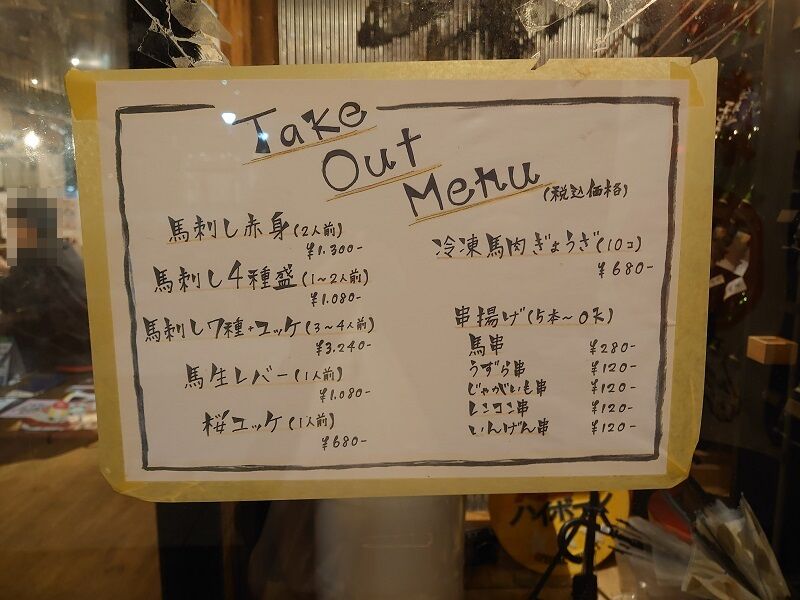 Take
Out
Menu
(税込価格)
馬刺し赤身(2人前)
¥1.300-
馬刺し4種盛(1〜2人前)
¥1.080-
馬刺し7種+ユッケ(3〜4人前)
¥3.240-
馬生レバー(1人前)
¥1.080-
桜ユッケ(1人前)
¥680-
冷凍馬肉ぎょうざ(10コ)
¥680-
串揚げ(5本〜OK)
馬串 ¥280-
うずら串 ¥120-
じゃがいも串 ¥120-
レンコン串 ¥120-
いんげん串 ¥120-
ハイボール